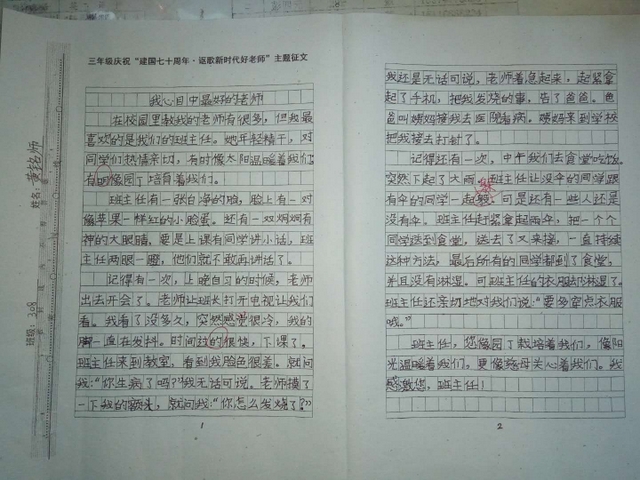 三年级庆祝“建国七十周年·讴歌新时代好老师”主题征文
姓名：黄铭师
班级：308
我心目中最好的老师
在校园里教我的老师有很多，但我最
喜欢的是我们的班主任。她年轻精干，对
同学们热情亲切，有时像太阳温暖着我们
有时像园丁培育着我们。
班主任有一张白净的脸，脸上有一对
像苹果一样红的小脸蛋。还有一双炯炯有
神的大眼睛，要是上课有同学讲小话，班
主任两眼一瞪，他们就不敢再讲话了。
记得有一次，上晚自习的时候，老师
出去开会了。老师让班长打开电视让我们
看。我看了没多久，突然感觉很冷，我的
脚一直在发抖。时间过的很快，下课了。
班主任来到教室，看到我脸色很差。就问
我：“你生病了吗？”我无话可说。老师摸了
一下我的额头，就问我：“你怎么发烧了？”
1
我还是无话可说，老师着急起来，赶紧拿
起了手机，把我发烧的事，告了爸爸。爸
爸叫姨妈接我去医院看病。姨妈来到学校
把我接去打针了。
记得还有一次，中午我们去食堂吃饭
突然下起了大雨。班主任让没伞的同学跟
有伞的同学一起撑。可是还有一些人还是
没有伞。班主任赶紧拿起雨伞，把一个个
同学送到食堂，送去了又来接，一直持续
这种方法，最后所有的同学都到了食堂，
并且没有淋湿。可班主任的衣服却淋湿了。
班主任还亲切地对我们说：“要多穿点衣服
哦。”
班主任，您像园丁栽培着我们，像阳
光温暖着我们。更像慈母关心着我们。我
感激您，班主任！
2